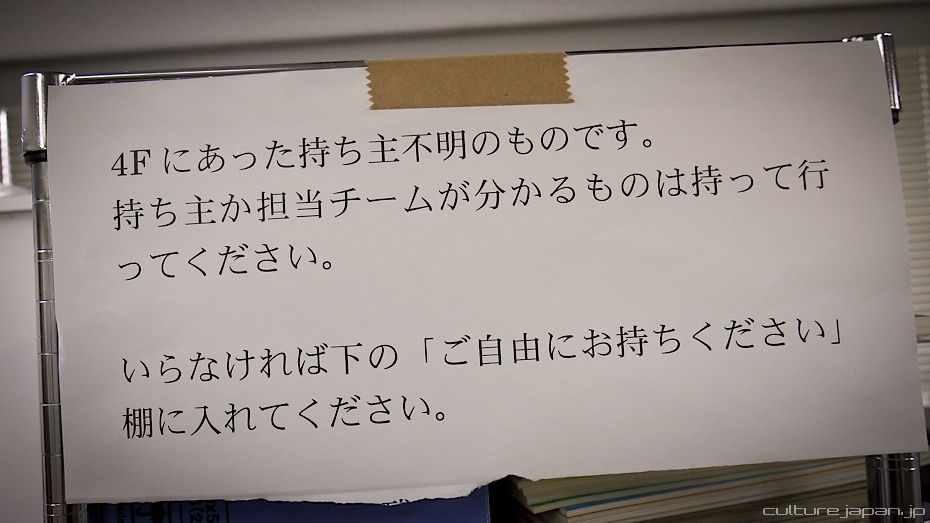 4Fにあった持ち主不明のものです。
持ち主か担当チームが分かるものは持って行
ってください。
いらなければ下の「ご自由にお持ちください」
棚に入れてください。
culturejapan.jp